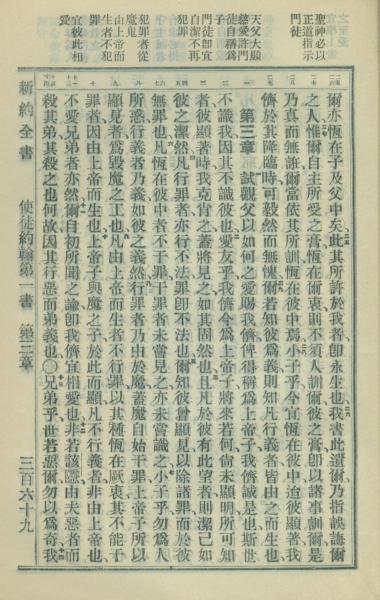 聖神必以
正道指示
門徒
天父大顯
慈愛許門
徒自稱為
子
門徒卽宜
自潔不再
犯罪
犯罪者從
魔鬼
由上帝而
生者不犯
罪
宜彼此相
愛
爾亦恆在子及父中矣此其所許於我者卽永生也我書此遺爾乃指誤誨爾
之人惟爾自主所受之膏恆在爾衷則不須人訓爾彼之膏卽以諸事訓爾是
乃真而無誑爾當依其所訓恆在彼中焉小子乎今宜恆在彼中迨彼顯著我
儕於其降臨時可毅然而無愧爾若知彼為義則知凡行義者皆由之而生也
第三章 試觀父以如何之愛賜我儕俾得稱為上帝子我儕誠是也斯世
不識我因其不識彼也愛友乎我儕今為上帝子將來若何尙未顯明所可知
者彼顯著時我克肖之蓋將見之如其固然也且凡於彼有此望者則潔己如
彼之潔然凡行罪者亦行不法罪卽不法也爾知彼曾顯見以除諸罪而於彼
無罪也凡恆在彼中者不干罪干罪者未嘗見之亦未嘗識之小子乎勿為人
所惑行義者乃義如彼之義然行罪者乃由於魔蓋魔自始干罪上帝子所以
顯見者為毀魔之工也凡由上帝而生者不行罪以其種恆在厥衷其不能干
罪者因由上帝而生也上帝子與魔之子於此而顯凡不行義者非由上帝也
不愛兄弟者亦然爾自初所聞之論卽我儕宜相愛也非若該隱由夫惡者而
殺其弟其殺之也何故因其行惡而弟義也〇兄弟乎世若惡爾勿以為奇我
新約全書 使徒約翰第一書 第三章 三百六十九